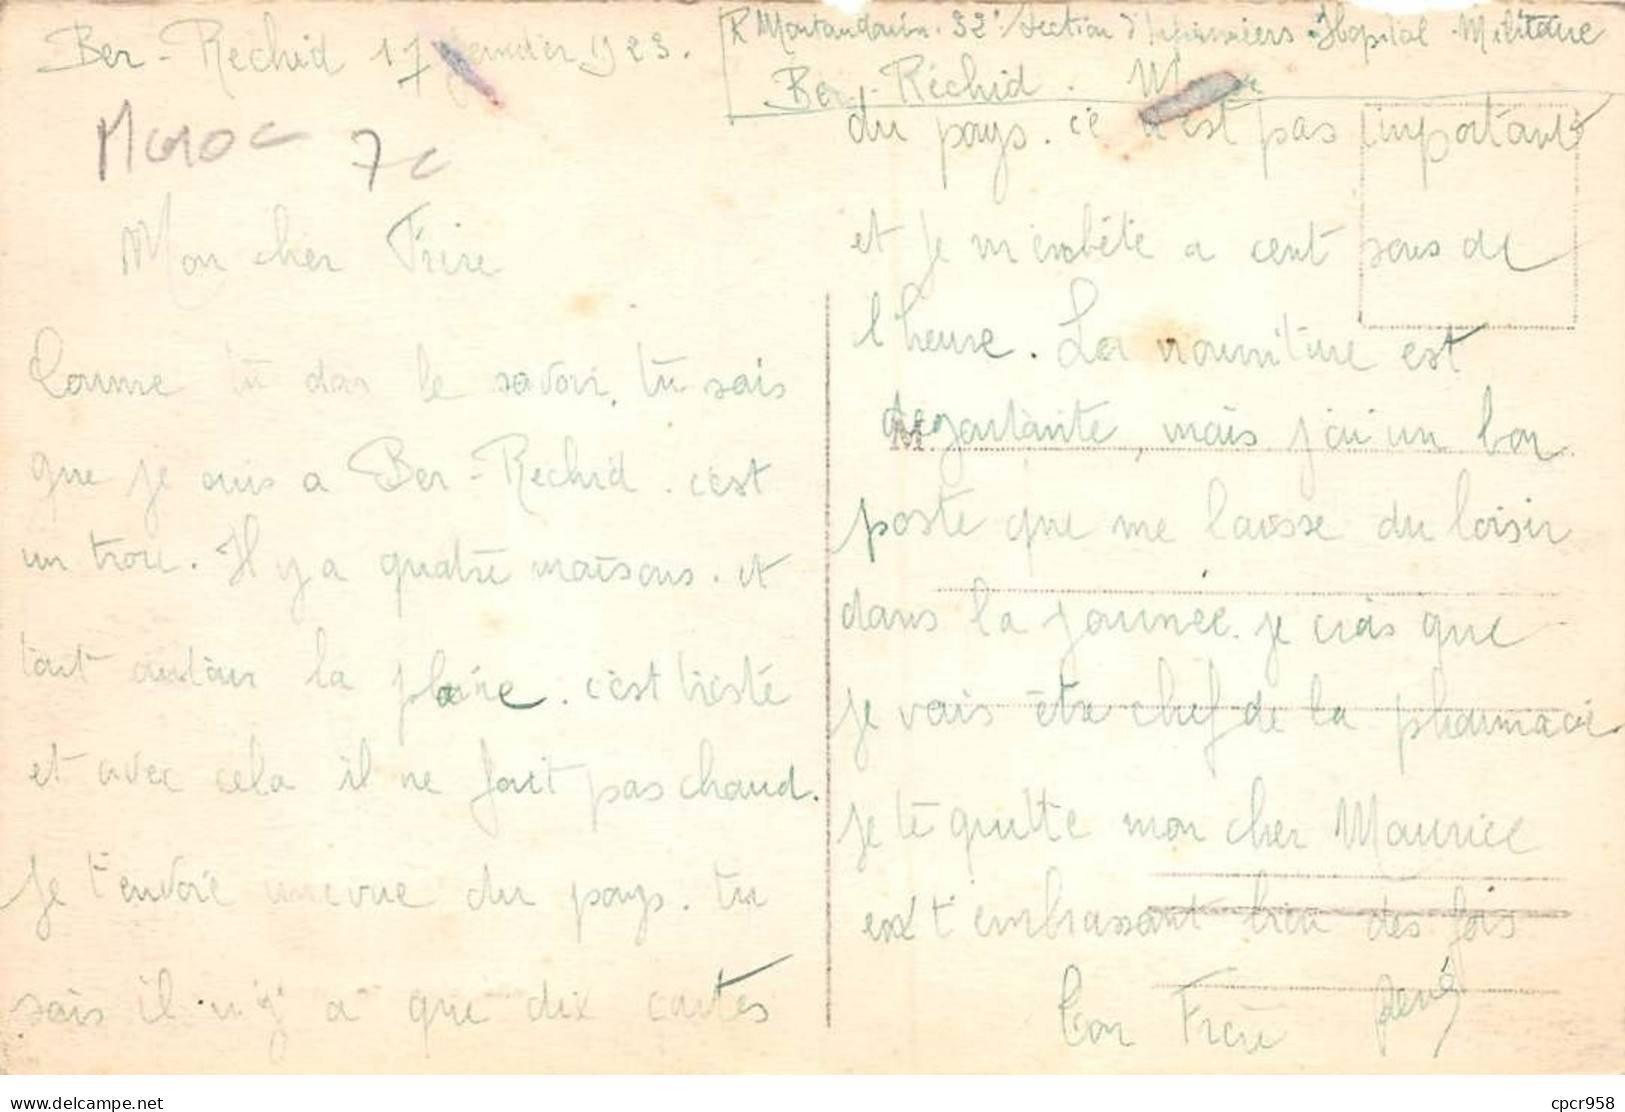 Ber-Rechid 17 janvier 1923.
R Montaudouin. 32e Section d'Infirmiers. Hopital Militaire
Ber-Réchid. Maroc
Maroc 7c
Mon cher Frère
Comme tu dois le savoir, tu sais
que je suis a Ber-Rechid. c'est
un trou. Il y a quatre maisons. et
tout autour la plaine. c'est triste
et avec cela il ne fait pas chaud.
Je t'envoie une vue du pays. tu
sais il n'y a que dix cartes
du pays. ce n'est pas important
et je m'embête a cent sous de
l'heure. La nourriture est
degoutante, mais j'ai un bon
poste que me laisse du loisir
dans la journée. je crois que
je vais être chef de la pharmacie
je te quitte mon cher Maurice
en t'embrassant bien des fois
Ton Frère René
M.
cpcr958